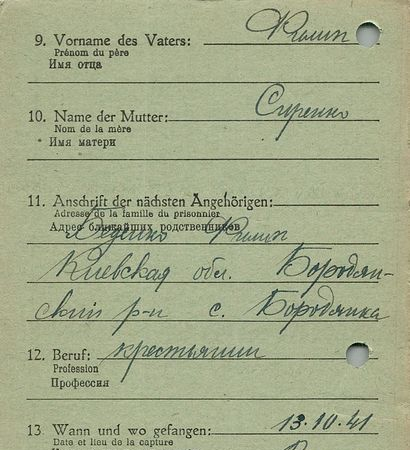 9. Vorname des Vaters: Климп
Prénom du père
Имя отца
10. Name der Mutter: Сиренко
Nom de la mère
Имя матери
11. Anschrift der nächsten Angehörigen:
Adresse de la famille du prisonnier
Адрес ближайших родственников
Климп
Киевская обл. Бородян-
ский р-н с. Бородянка
12. Beruf: крестьянин
Profession
Профессия
13. Wann und wo gefangen: 13.10.41
Date et lieu de la capture